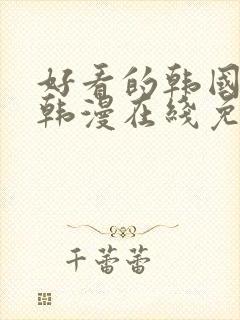 好看的韩国
韩漫在线免
千蕾蕾